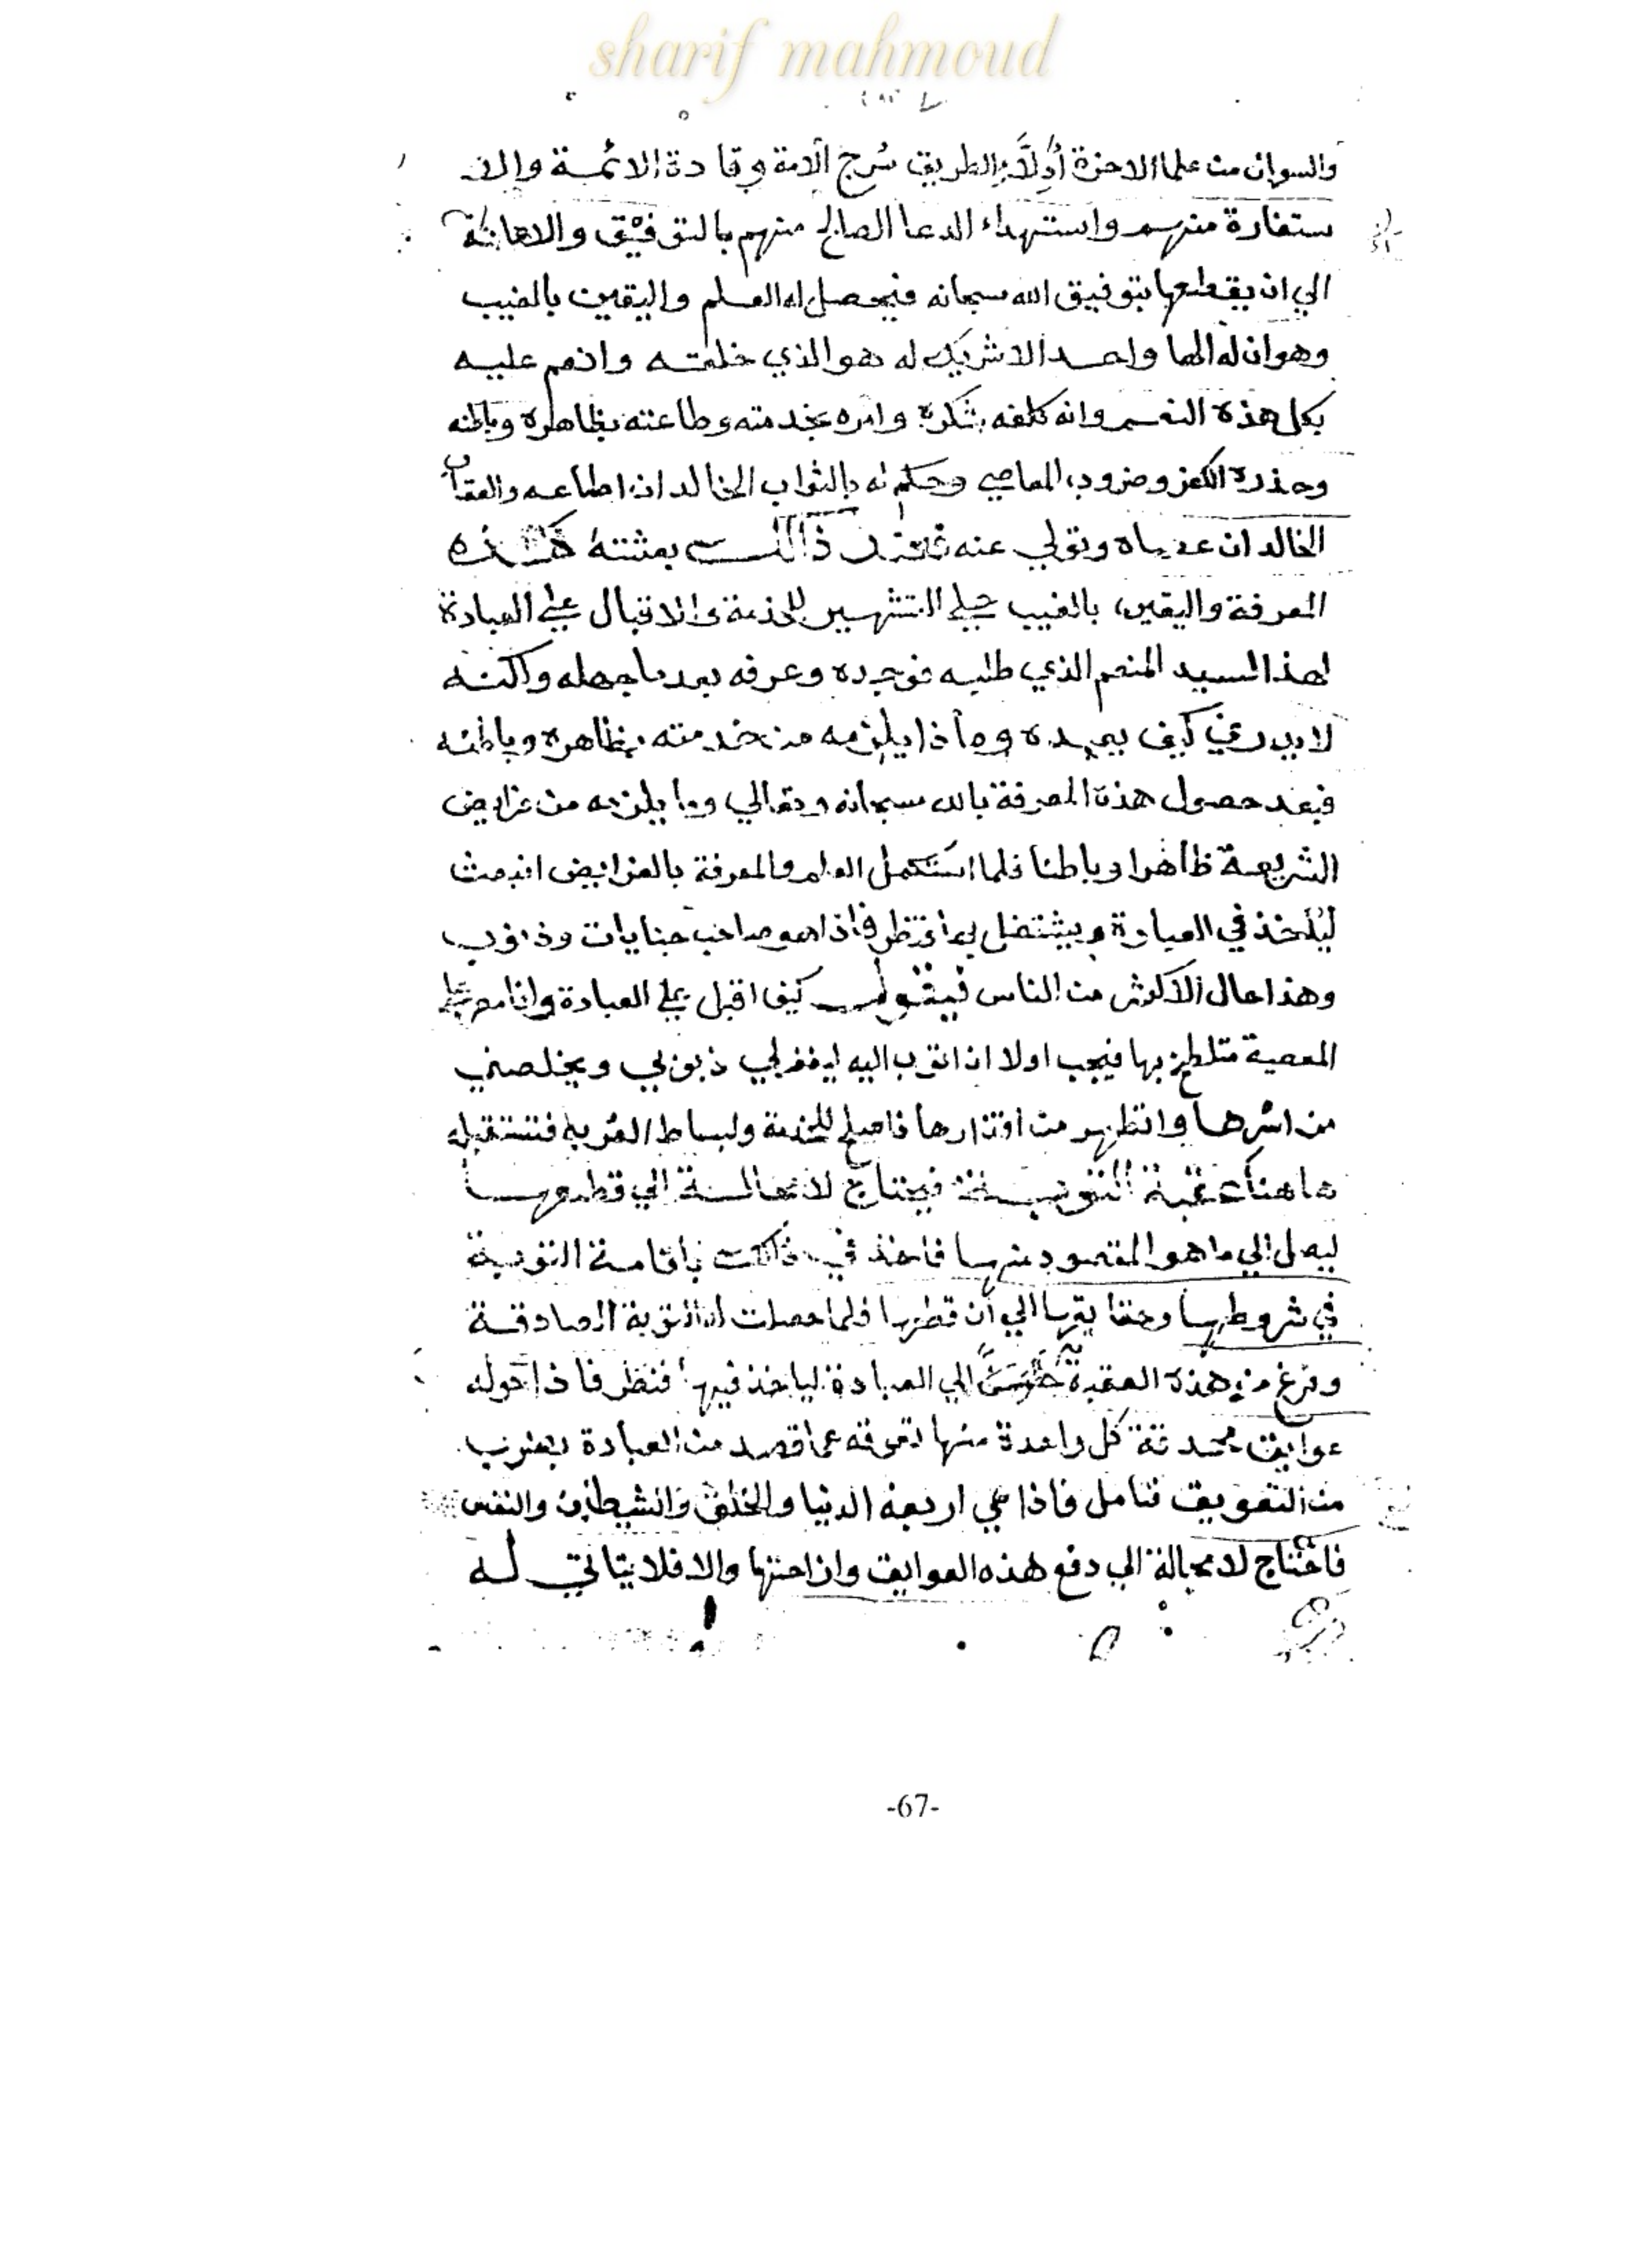 sharif mahmoud
والسوان من علما الاخرة أدِلَّاء الطريق سُرج الامة وقادة الائمة والا
ستفارة منهم واستهداء الدعا الصالح منهم بالتوفيق والاعانة
الي ان يقطعها بتوفيق الله سبحانه فيحصل له العلم واليقين بالغيب
وهو ان له الها واحدا لا شريك له هو الذي خلقه وانعم عليه
بكل هذه النعم وانه كلفه بشكره وامره بخدمته وطاعته بظاهره وباطنه
وحذره الكفر وضروب المعاصي وحكم له بالثواب الخالد ان اطاعه والعقاب
الخالد ان عصاه وتولي عنه فعند ذالك بعثته هذه
المعرفة واليقين بالغيب علي التشمير للخدمة والاقبال علي العبادة
لهذا السيد المنعم الذي طلبه فوجده وعرفه بعد ما جهله واكنه
لا يدري كيف يعبده وماذا يلزمه من خدمته بظاهره وباطنه
فبعد حصول هذه المعرفة بالله سبحانه وتعالي وما يلزمه من فرايض
الشريعة ظاهرا وباطنا فلما استكمل العلم والمعرفة بالفرايض انبعث
ليأخذ في العبادة ويشتغل بها فنظر فاذا هو صاحب جنايات وذنوب
وهذا حال الاكثر من الناس فيقول كيف اقبل علي العبادة وانا مصر علي
المعصية متلطخ بها فيجب اولا ان اتوب اليه ليغفر لي ذنوبي ويخلصني
من اسرها واتطهر من اقذارها فاصلح للخدمة ولبساط القربه فتستقبله
هاهنا عقبة التوبة فيحتاج لا محالة الي قطعها
ليصل الي ما هو المقصود منها فاخذ في ذالك باقامة التوبة
في شروطها وحقايقها الي أن قطعها فلما حصلت له التوبة الصادقة
وفرغ من هذه العقبة حَنَّ الي العبادة لياخذ فيها فنظر فاذا حوله
عوايق محدقة كل واحدة منها تعوقه عما قصد من العبادة بضرب
من التعويق فتامل فاذا هي اربعة الدنيا والخلق والشيطان والنفس
فاحتاج لا محالة الي دفع هذه العوايق وازاحتها والا فلا يتاتي له
-67-